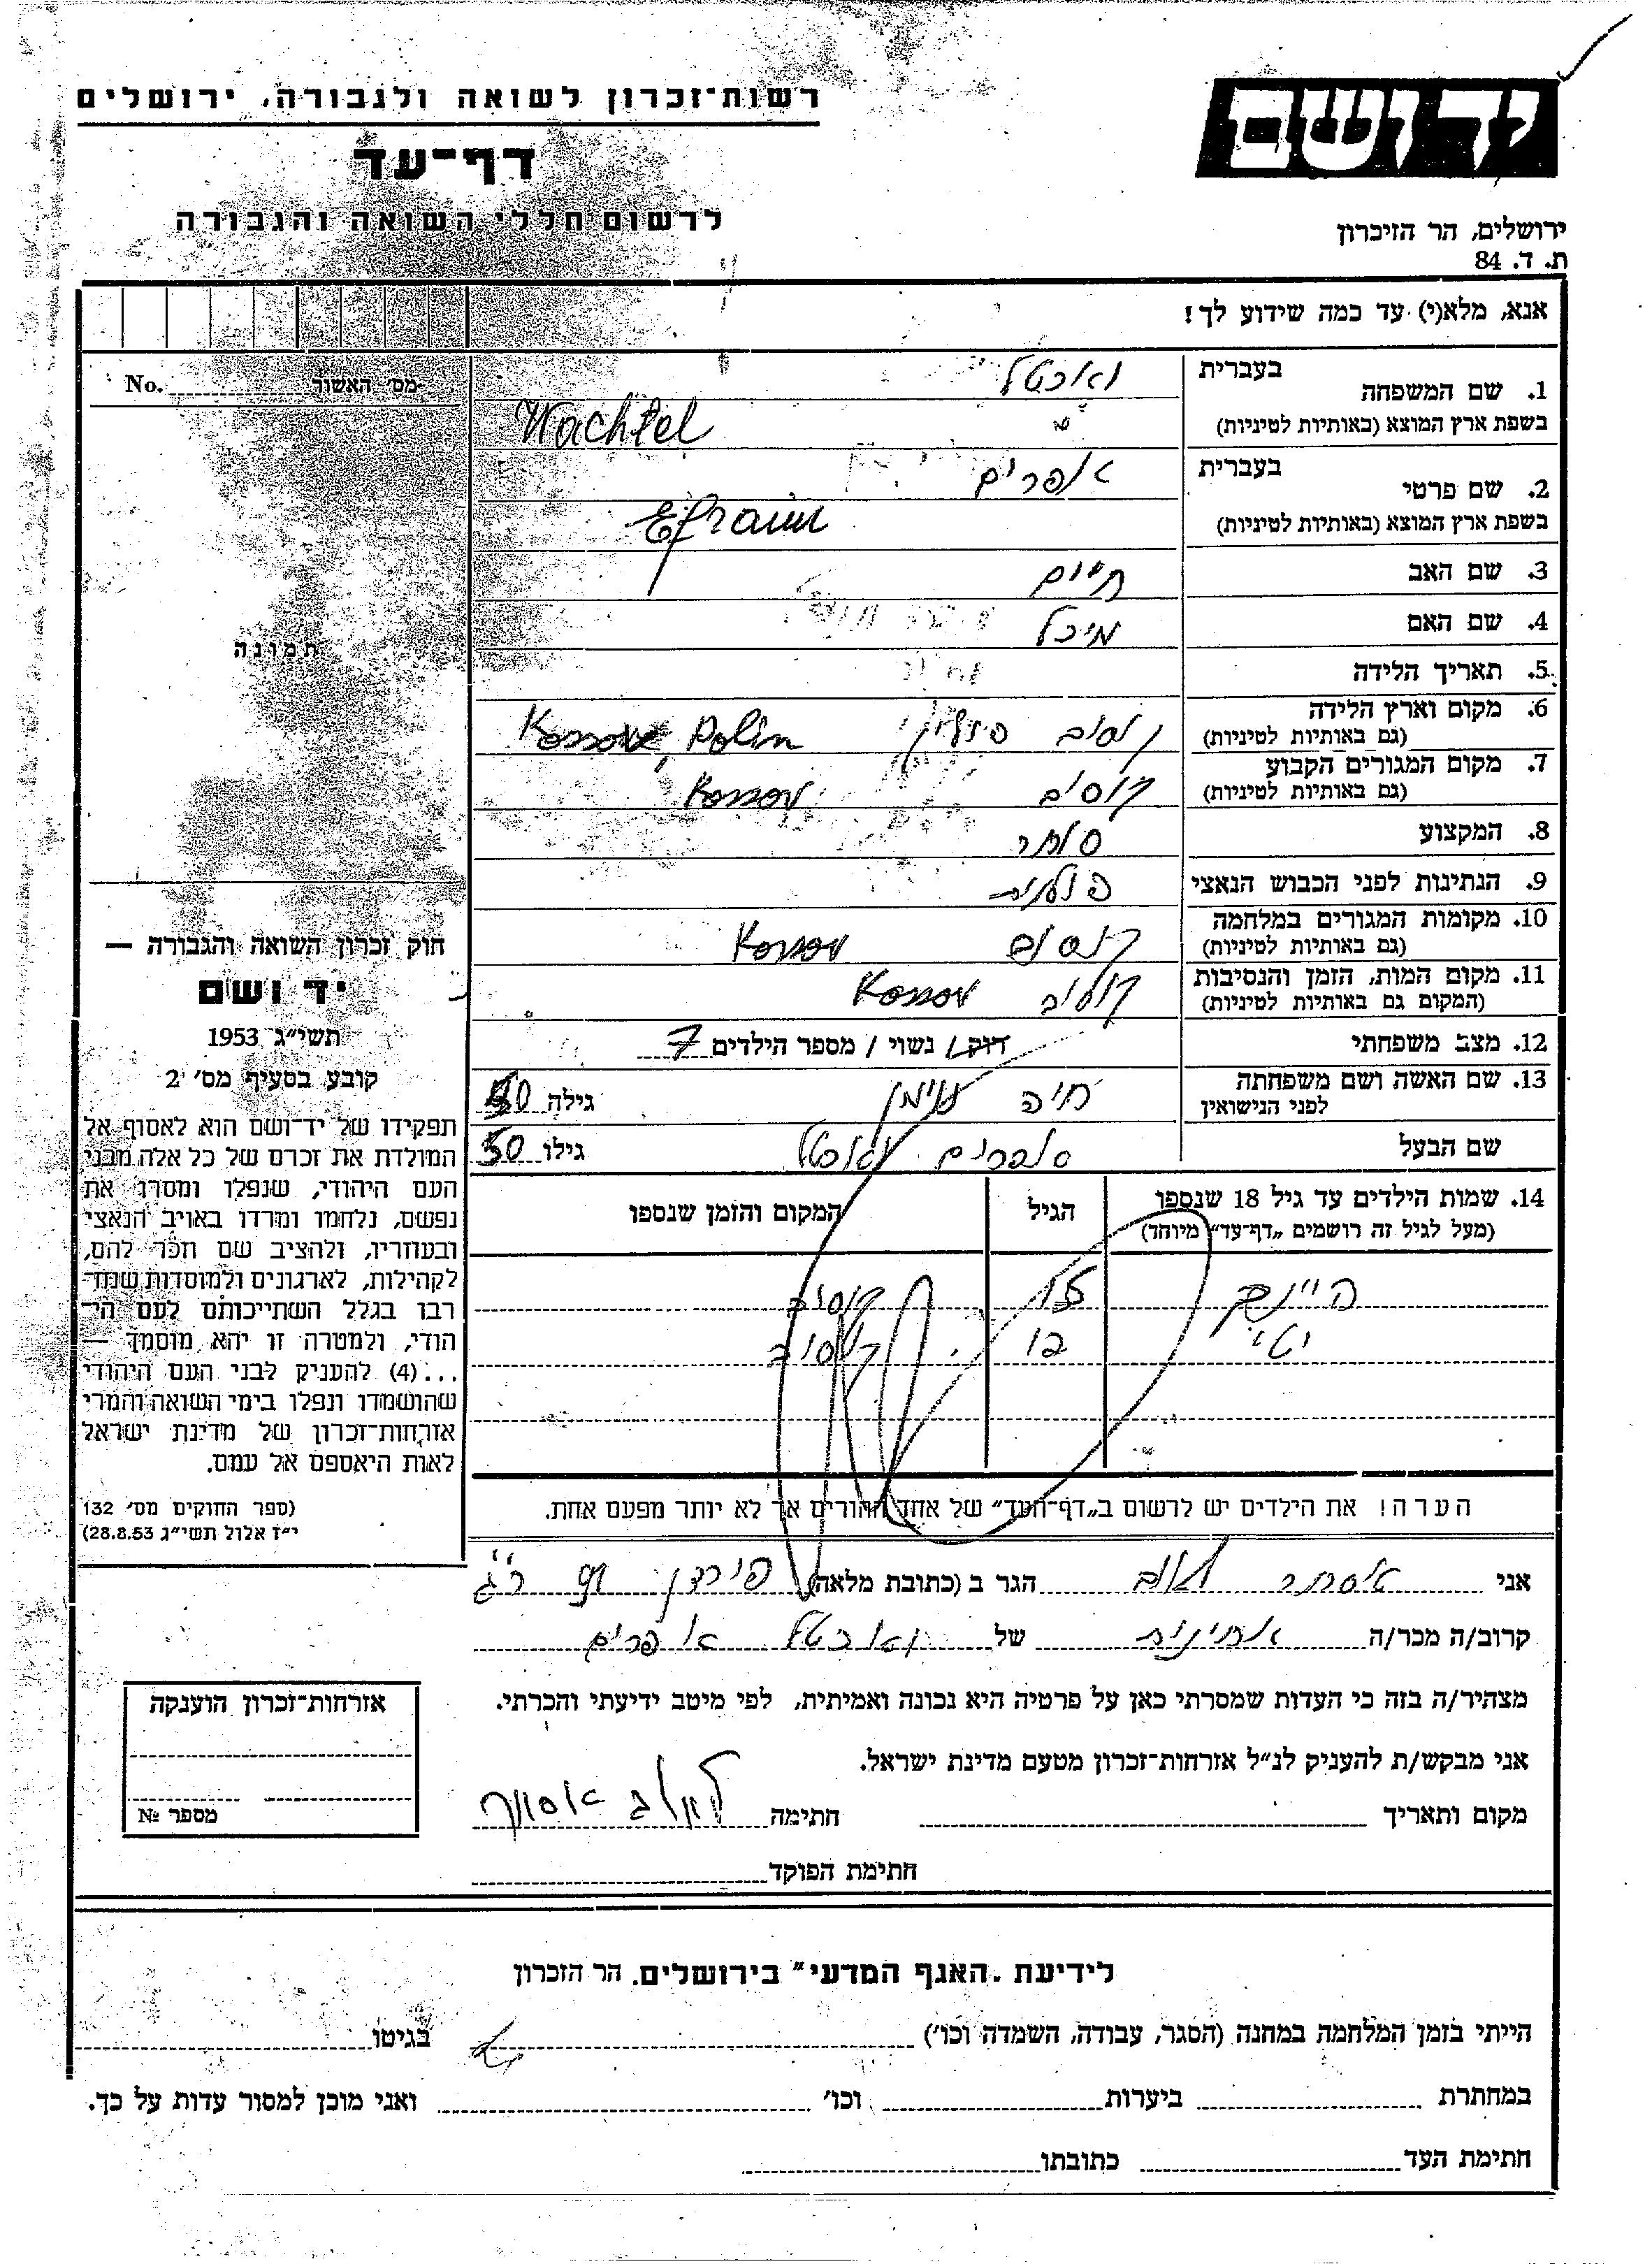 יד ושם
ירושלים, הר הזיכרון
ת. ד. 84
רשות־זכרון לשואה ולגבורה, ירושלים
דף־עד
לרשום חללי השואה והגבורה
אנא, מלא(י) עד כמה שידוע לך!
מס' האשור No.
תמונה
1. שם המשפחה בעברית ואכטל
בשפת ארץ המוצא (באותיות לטיניות) Wachtel
2. שם פרטי בעברית אפרים
בשפת ארץ המוצא (באותיות לטיניות) Efraim
3. שם האב חיים
4. שם האם מיכל
5. תאריך הלידה
6. מקום וארץ הלידה (גם באותיות לטיניות) קוסוב פולין Kossov, Polin
7. מקום המגורים הקבוע (גם באותיות לטיניות) קוסוב Kossov
8. המקצוע סוחר
9. הנתינות לפני הכבוש הנאצי פולנית
10. מקומות המגורים במלחמה (גם באותיות לטיניות) קוסוב Kossov
11. מקום המות, הזמן והנסיבות (המקום גם באותיות לטיניות) קוסוב Kossov
12. מצב משפחתי רווק / נשוי / מספר הילדים 7
13. שם האשה ושם משפחתה לפני הנישואין חיה גילה
שם הבעל אפרים ואכטל גילו 50
14. שמות הילדים עד גיל 18 שנספו (מעל לגיל זה רושמים „דף־עד" מיוחד) הגיל המקום והזמן שנספו
היינך 15 קוסוב
יטי קוסוב
הערה! את הילדים יש לרשום ב„דף־העד" של אחד ההורים אך לא יותר מפעם אחת.
חוק זכרון השואה והגבורה —
יד ושם
תשי״ג 1953
קובע בסעיף מס' 2
תפקידו של יד־ושם הוא לאסוף אל
המולדת את זכרם של כל אלה מבני
העם היהודי, שנפלו ומסרו את
נפשם, נלחמו ומרדו באויב הנאצי
ובעוזריו, ולהציב שם וזכר להם,
לקהילות, לארגונים ולמוסדות שנח־
רבו בגלל השתייכותם לעם הי־
הודי, ולמטרה זו יהא מוסמך —
...(4) להעניק לבני העם היהודי
שהושמדו ונפלו בימי השואה והמרי
אזרחות־זכרון של מדינת ישראל
לאות היאספם אל עמם.
(ספר החוקים מס' 132
י״ז אלול תשי״ג 28.8.53)
אני אסתר הגר ב (כתובת מלאה)
קרוב/ה מכר/ה אחינית של ואכטל אפרים
מצהיר/ה בזה כי העדות שמסרתי כאן על פרטיה היא נכונה ואמיתית, לפי מיטב ידיעתי והכרתי.
אני מבקש/ת להעניק לנ״ל אזרחות־זכרון מטעם מדינת ישראל.
מקום ותאריך חתימה
חתימת הפוקד
אזרחות־זכרון הוענקה
מספר №
לידיעת „האגף המדעי" בירושלים. הר הזכרון
הייתי בזמן המלחמה במחנה (הסגר, עבודה, השמדה וכו') בגיטו
במחתרת ביערות וכו' ואני מוכן למסור עדות על כך.
חתימת העד כתובתו